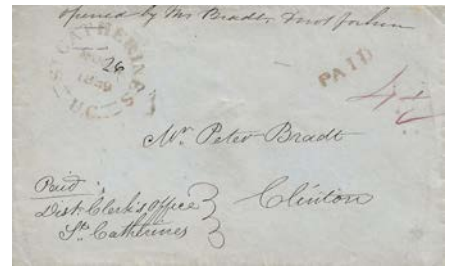 opened by Mr Bradt, & not for him
ST CATHERINES
26
1849
U.C.
PAID
Mr. Peter Bradt
Paid
Clinton
Dist. Clerk's Office
St. Catherines